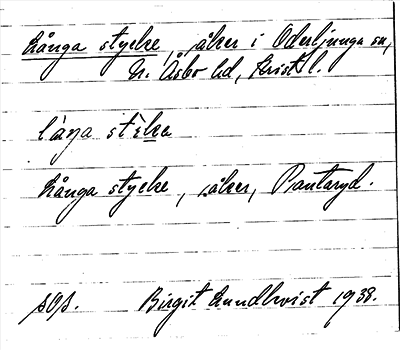 Långa stycke, åker i Oderljunga sn,
N. Åsbo hd, Krist. l.
låŋa stɛ̀kə
Långa stycke, åker, Pantaryd.
sop. Birgit Lundkvist 1938.